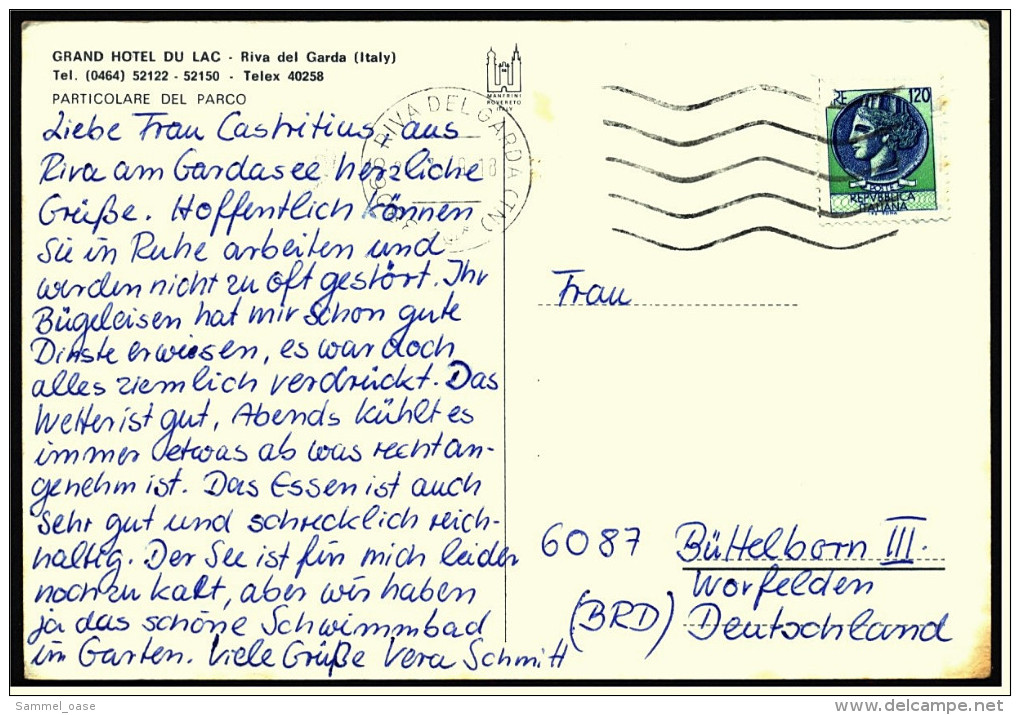 GRAND HOTEL DU LAC - Riva del Garda (Italy)
Tel. (0464) 52122 - 52150 - Telex 40258
PARTICOLARE DEL PARCO
MANFRINI
ROVERETO
ITALY
RIVA DEL GARDA (TN)
120
POSTE
REPVBBLICA
ITALIANA
Liebe Frau Castritius, aus
Riva am Gardasee herzliche
Grüße. Hoffentlich können
Sie in Ruhe arbeiten und
werden nicht zu oft gestört. Ihr
Bügeleisen hat mir schon gute
Dinste erwiesen, es war doch
alles ziemlich verdrückt. Das
Wetter ist gut, Abends kühlt es
immer etwas ab was recht an-
genehm ist. Das Essen ist auch
sehr gut und schrecklich reich-
haltig. Der See ist für mich leider
noch zu kalt, aber wir haben
ja das schöne Schwimmbad
im Garten. Viele Grüße Vera Schmitt
Frau
6087 Büttelborn III.
Worfelden
(BRD) Deutschland
Sammel_oase
www.delcampe.net